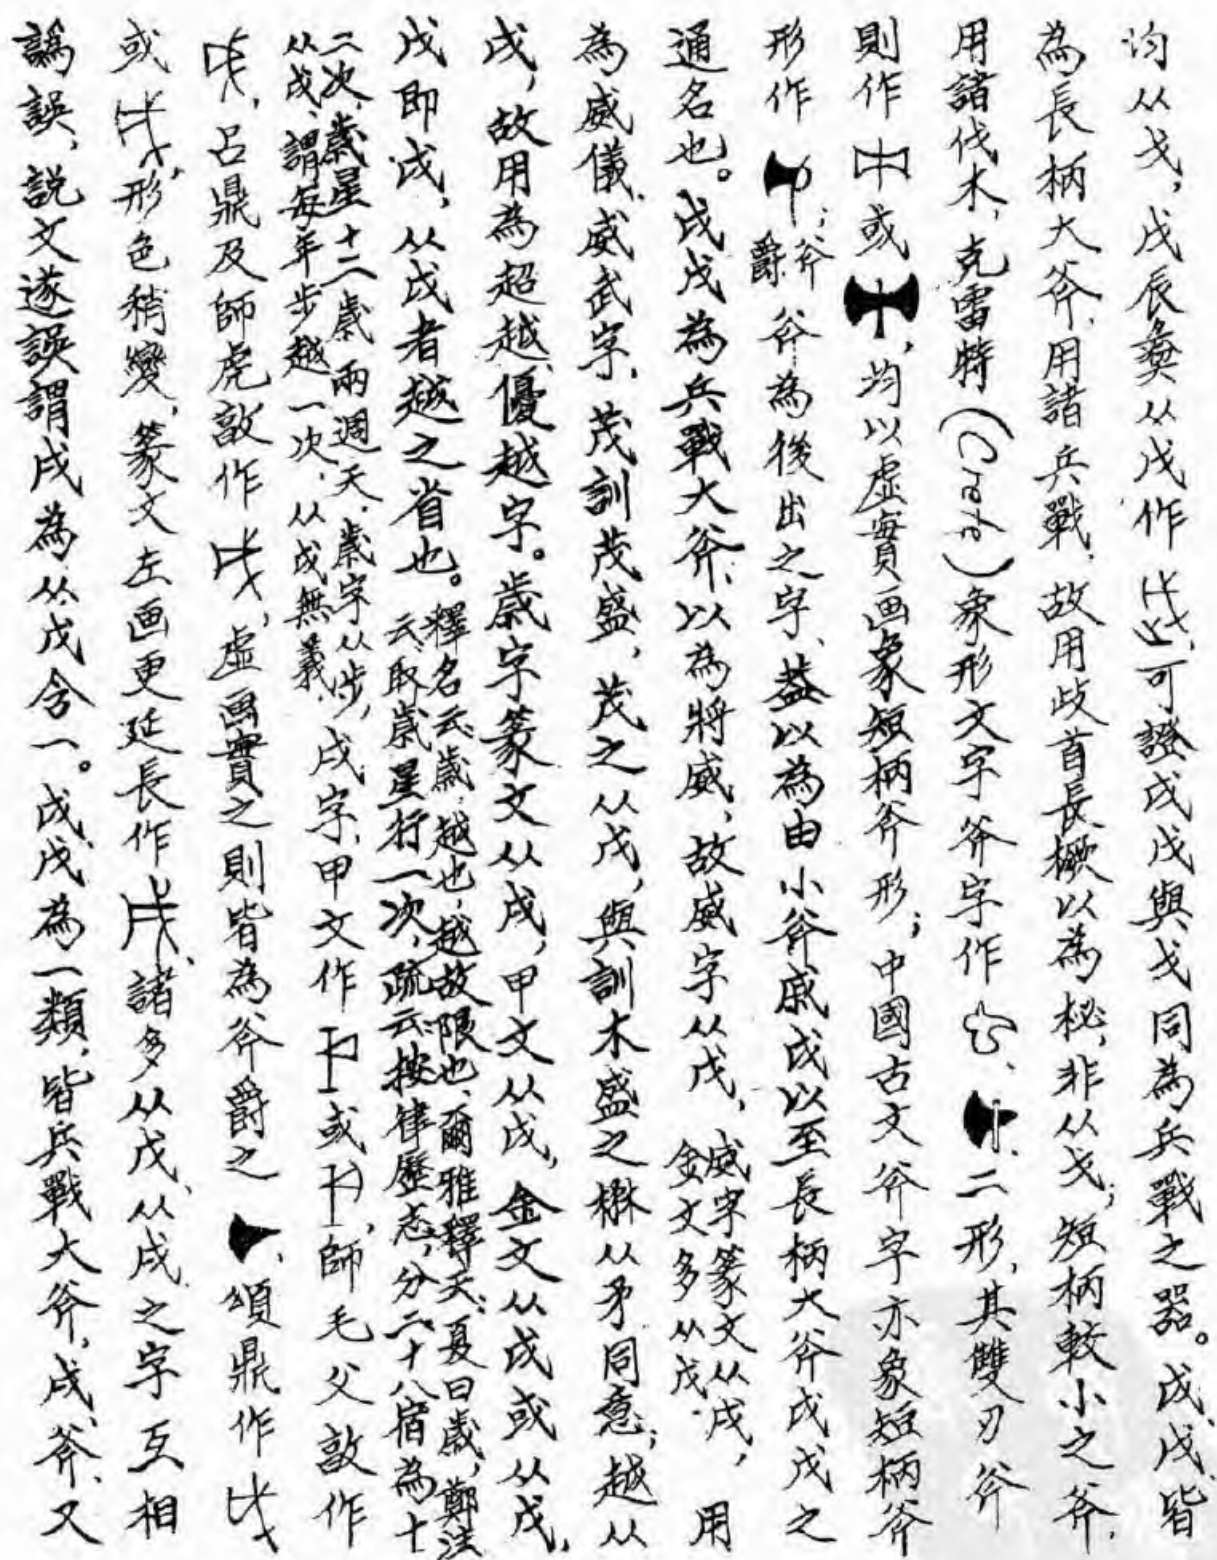 均从戈，戊辰彝从戊作，可證戉戊與戈同為兵戰之器。戉、戊皆
為長柄大斧，用諸兵戰，故用歧首長橛以為柲，非从戈；短柄較小之斧，
用諸伐木，克雷特(Crete)象形文字斧字作、二形，其雙刃斧
則作或，均以虛實画象短柄斧形；中國古文斧字亦象短柄斧
形作；斧爵斧為後出之字，蓋以為由小斧戚戉以至長柄大斧戉戊之
通名也。戉戊為兵戰大斧，以為將威，故威字从戊，威字篆文从戌，金文多从戊。用
為威儀、威武字，茂訓茂盛，茂之从戊，與訓木盛之楙从矛同意；越从
戉，故用為超越、優越字。歲字篆文从戌，甲文从戉，金文从戉或从戊，
戊即戉，从戉者越之省也。釋名云歲，越也，越故限也，爾雅釋天：夏曰歲，鄭注云取歲星行一次，疏云按律歷志，分二十八宿為十
二次，歲星十二歲兩週天，歲字从步，从戉，謂每年步越一次，从戌無義。戌字，甲文作或，師毛父敦作
，吕鼎及師虎敦作，虛画實之則皆為斧爵之，頌鼎作
或，形色稍變，篆文左画更延長作，諸多从戊、从戌之字互相
譌誤，説文遂誤謂戌為从戊含一。戉、戊為一類，皆兵戰大斧，戌、斧、又